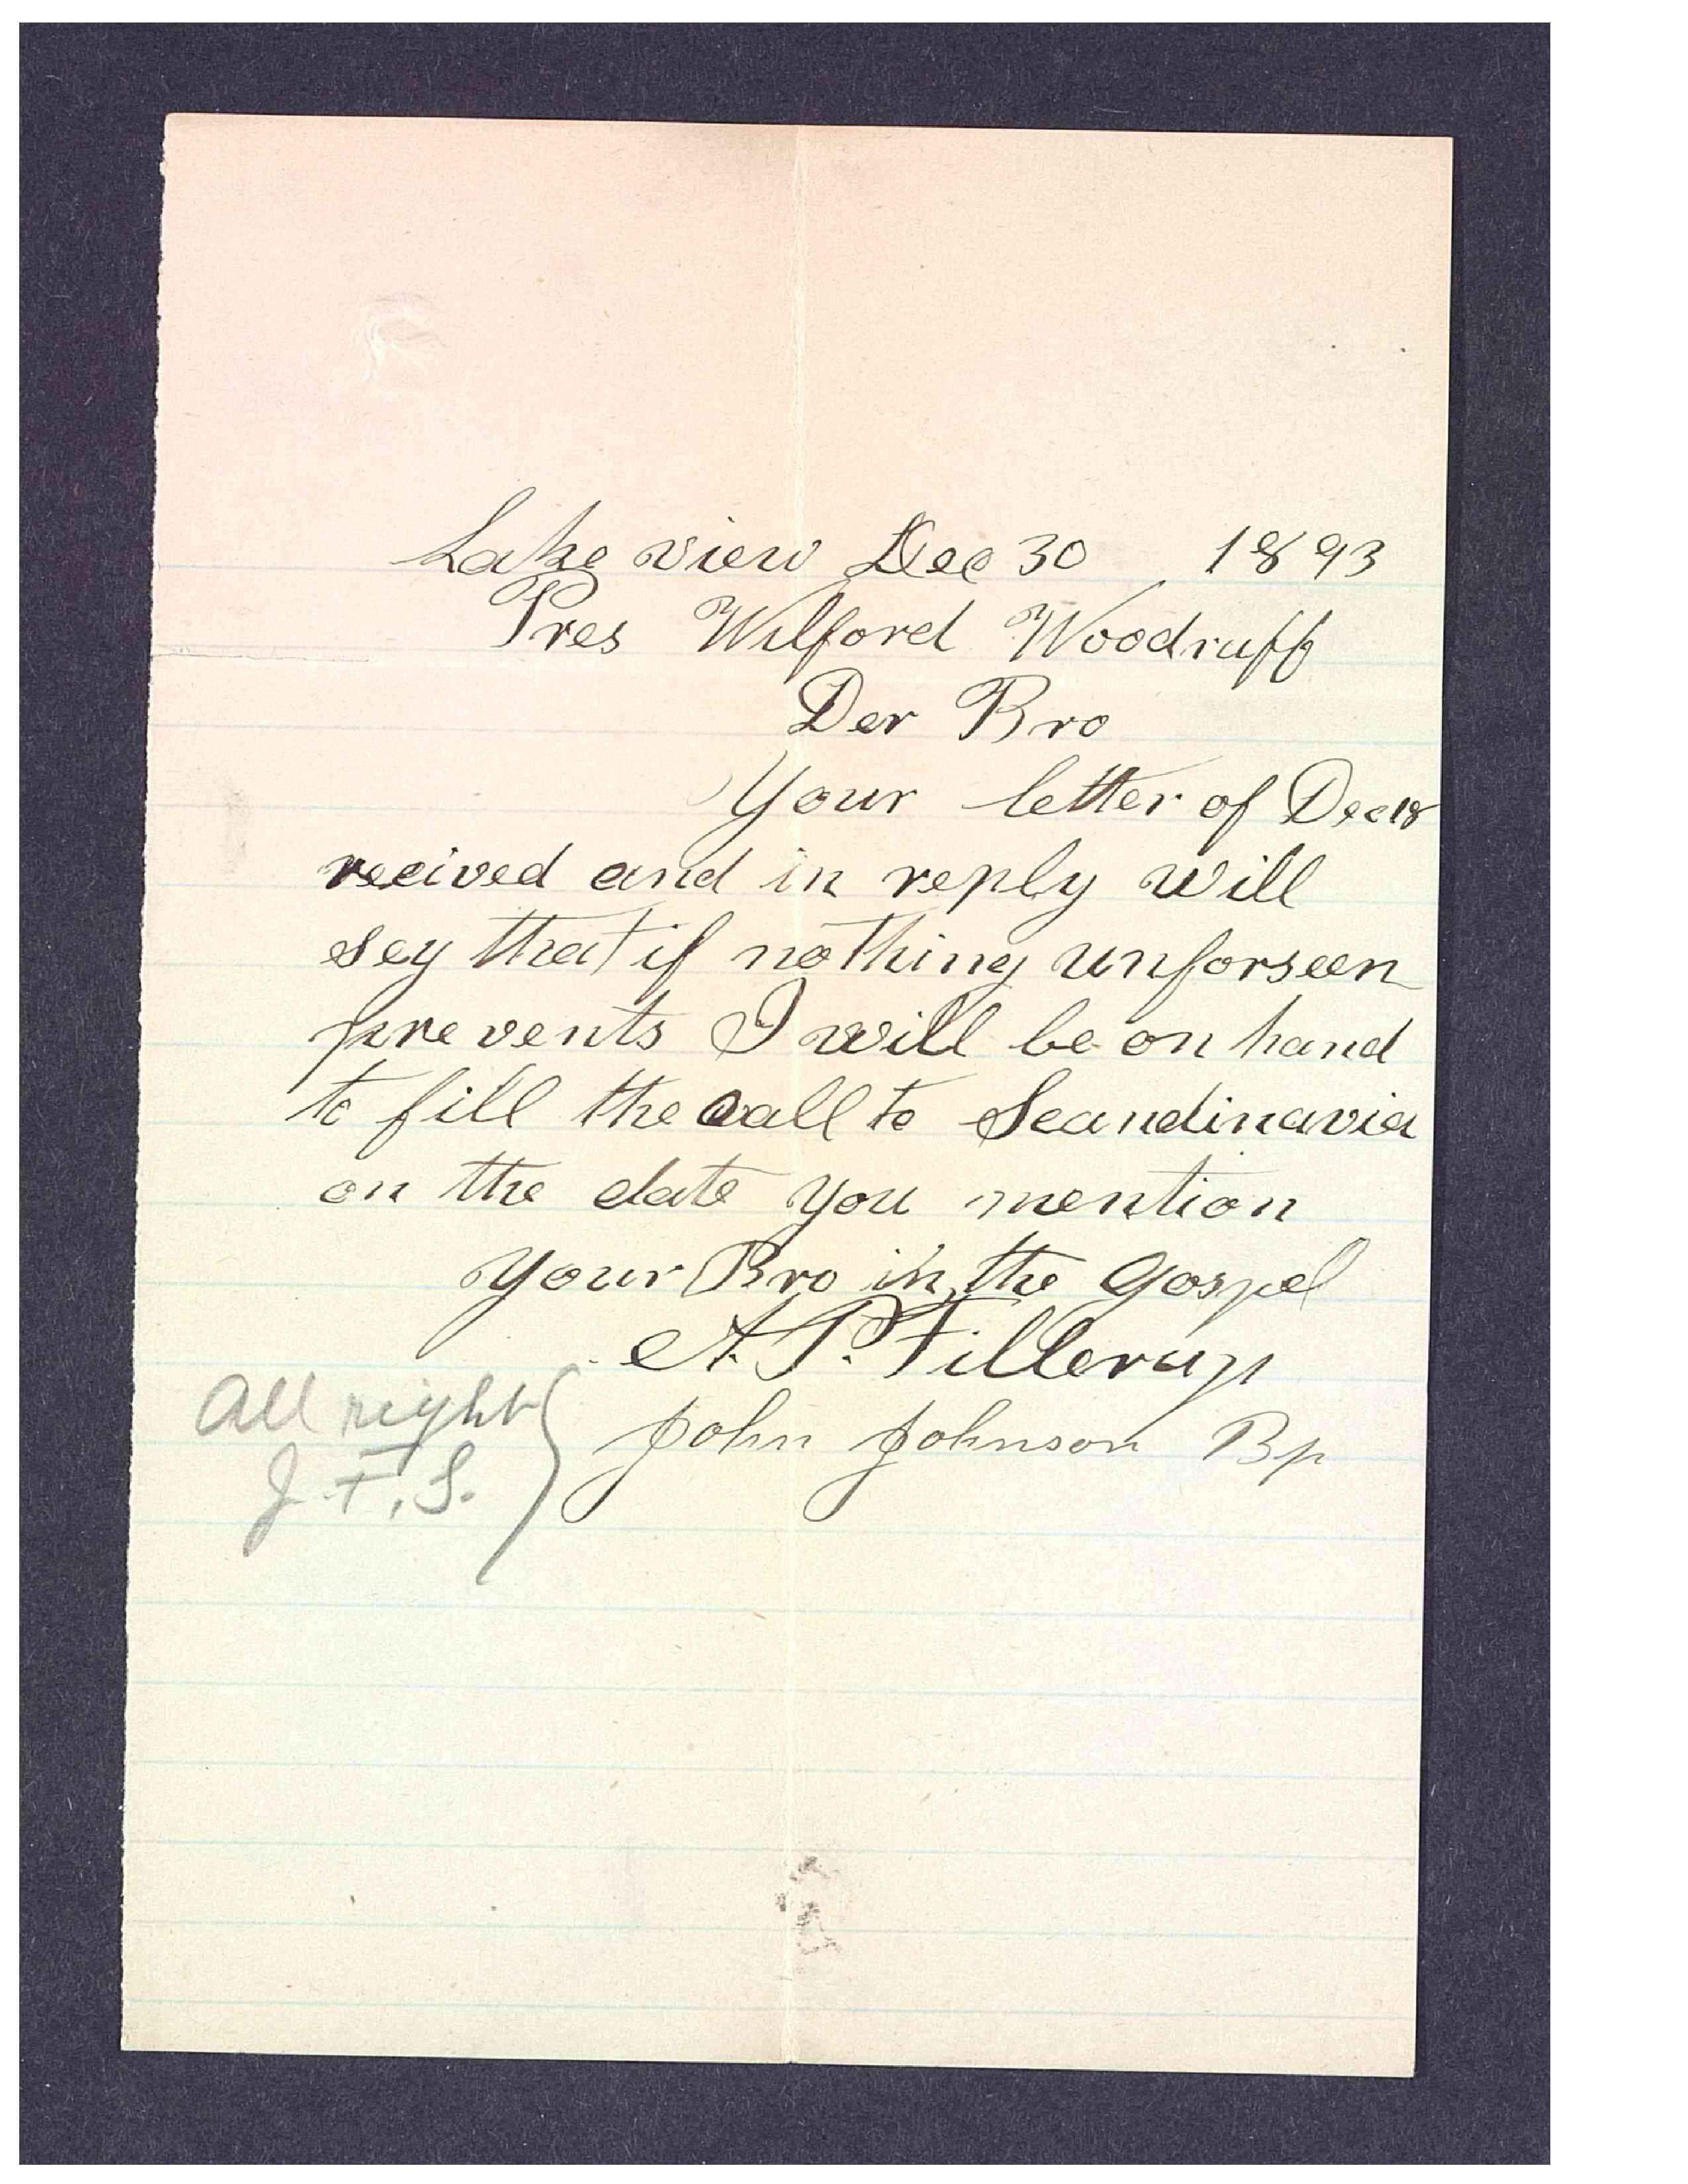 Lake view Dec 30 1893
Pres Wilford Woodruff
Der Bro
Your letter of Dec 18
recived and in reply will
sey that if nothing unforseen
prevents I will be on hand
to fill the call to Scandinavia
on the date you mention
Your Bro in the Gospel
A. P. Fillerup
John Johnson Bp
All right
J. F. S.